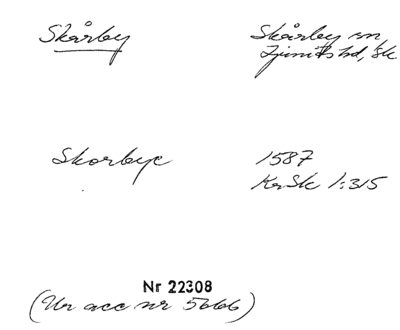 Skårby
Skårby sn
Ljunits hd, Sk
Skorbye
1587
KrSk 1:315
Nr 22308
(Ur acc nr 5666)